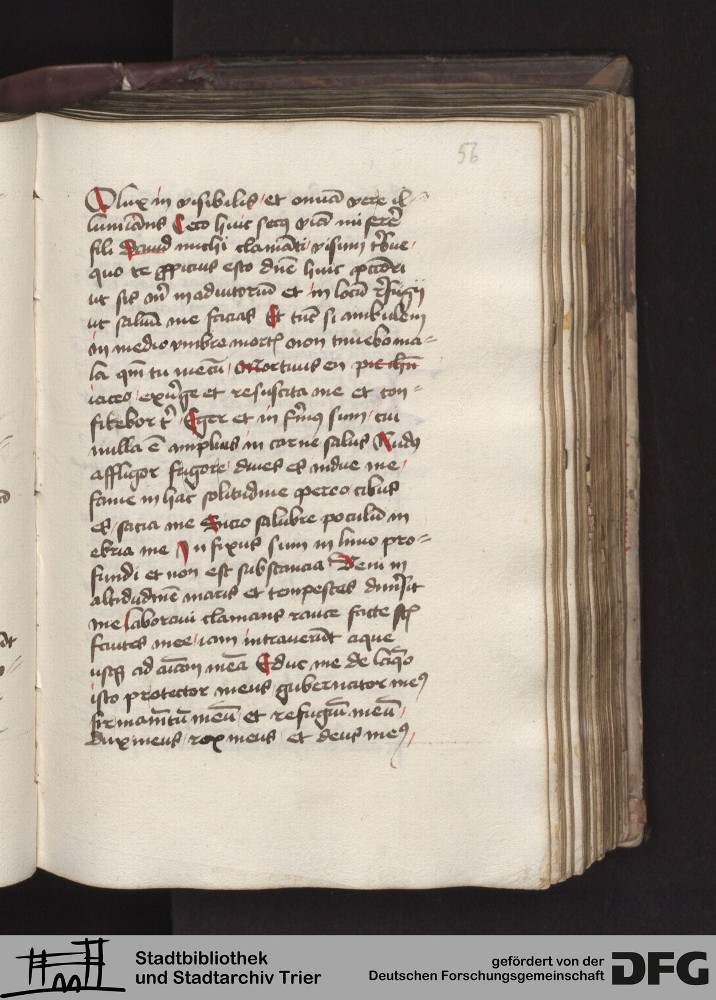 56
O lux in visibilis et omnia vere il-
luminans Ceco huic secus viam miserere
fili Dauid michi clamanti visum tribue
quo te
ut sis in adiutorium et in locum refugij
ut saluum me facias Et tunc si ambulem
in medio vmbre mortis non timebo ma-
la quoniam tu mecum Mortuus en
iaceo exurge et resuscita me et con-
fitebor tibi Eger et in firmus sum cui
nulla est amplius in carne salus Nudus
affligor frigore diues es indue me
fame in hac solitudine pereo cibus
es sacia me Sicio salubre poculum in
ebria me In fixus sum in limo pro-
fundi et non est substancia Veni in
altidudinem maris et tempestas dimersit
me laboraui clamans rauce facte sunt
fauces mee iam intrauerunt aque
usque ad animam meam Educ me de laqueo
isto protector meus gubernator meus
firmamentum meum et refugium meum
dux meus rex meus et deus meus
Stadtbibliothek
und Stadtarchiv Trier
gefördert von der
Deutschen Forschungsgemeinschaft
DFG